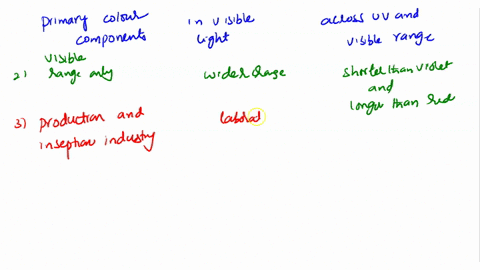 primary colour in visible across UV and
components light visible range
visible
2) range only wider range shorter than violet
and
longer than red
3) production and laborat
inseption industry